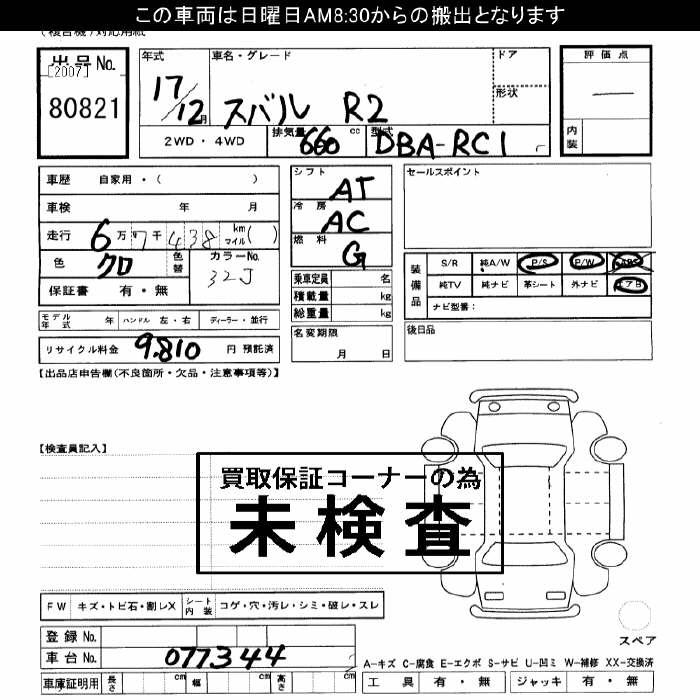 この車両は日曜日AM8:30からの搬出となります
(複合機)対応用紙
出品No. [2007] 80821
年式 17/12月
車名・グレード スバル R2
ドア
形状
評価点 —
内装
2WD・4WD 排気量 660 cc 型式 DBA-RC1
車歴 自家用・( )
車検 年 月
走行 6万7千438 km マイル( )
色 クロ 色替 カラーNo. 32J
保証書 有・無
シフト AT
冷房 AC
燃料 G
乗車定員 名
積載量 kg
総重量 kg
セールスポイント
装備品 S/R 純A/W P/S P/W ABS
純TV 純ナビ 革シート 外ナビ エアB
ナビ型番:
モデル年式 年 ハンドル 左・右 ディーラー・並行
名変期限 月 日
後日品
リサイクル料金 9,810 円 預託済
【出品店申告欄(不良箇所・欠品・注意事項等)】
【検査員記入】
買取保証コーナーの為
未検査
FW キズ・トビ石・割レX シート内装 コゲ・穴・汚レ・シミ・破レ・スレ
スペア
登録No.
車台No. 077344
A-キズ C-腐食 E-エクボ S-サビ U-凹ミ W-補修 XX-交換済
車庫証明用 長さ cm 幅 cm 高さ cm
工具 有・無 ジャッキ 有・無